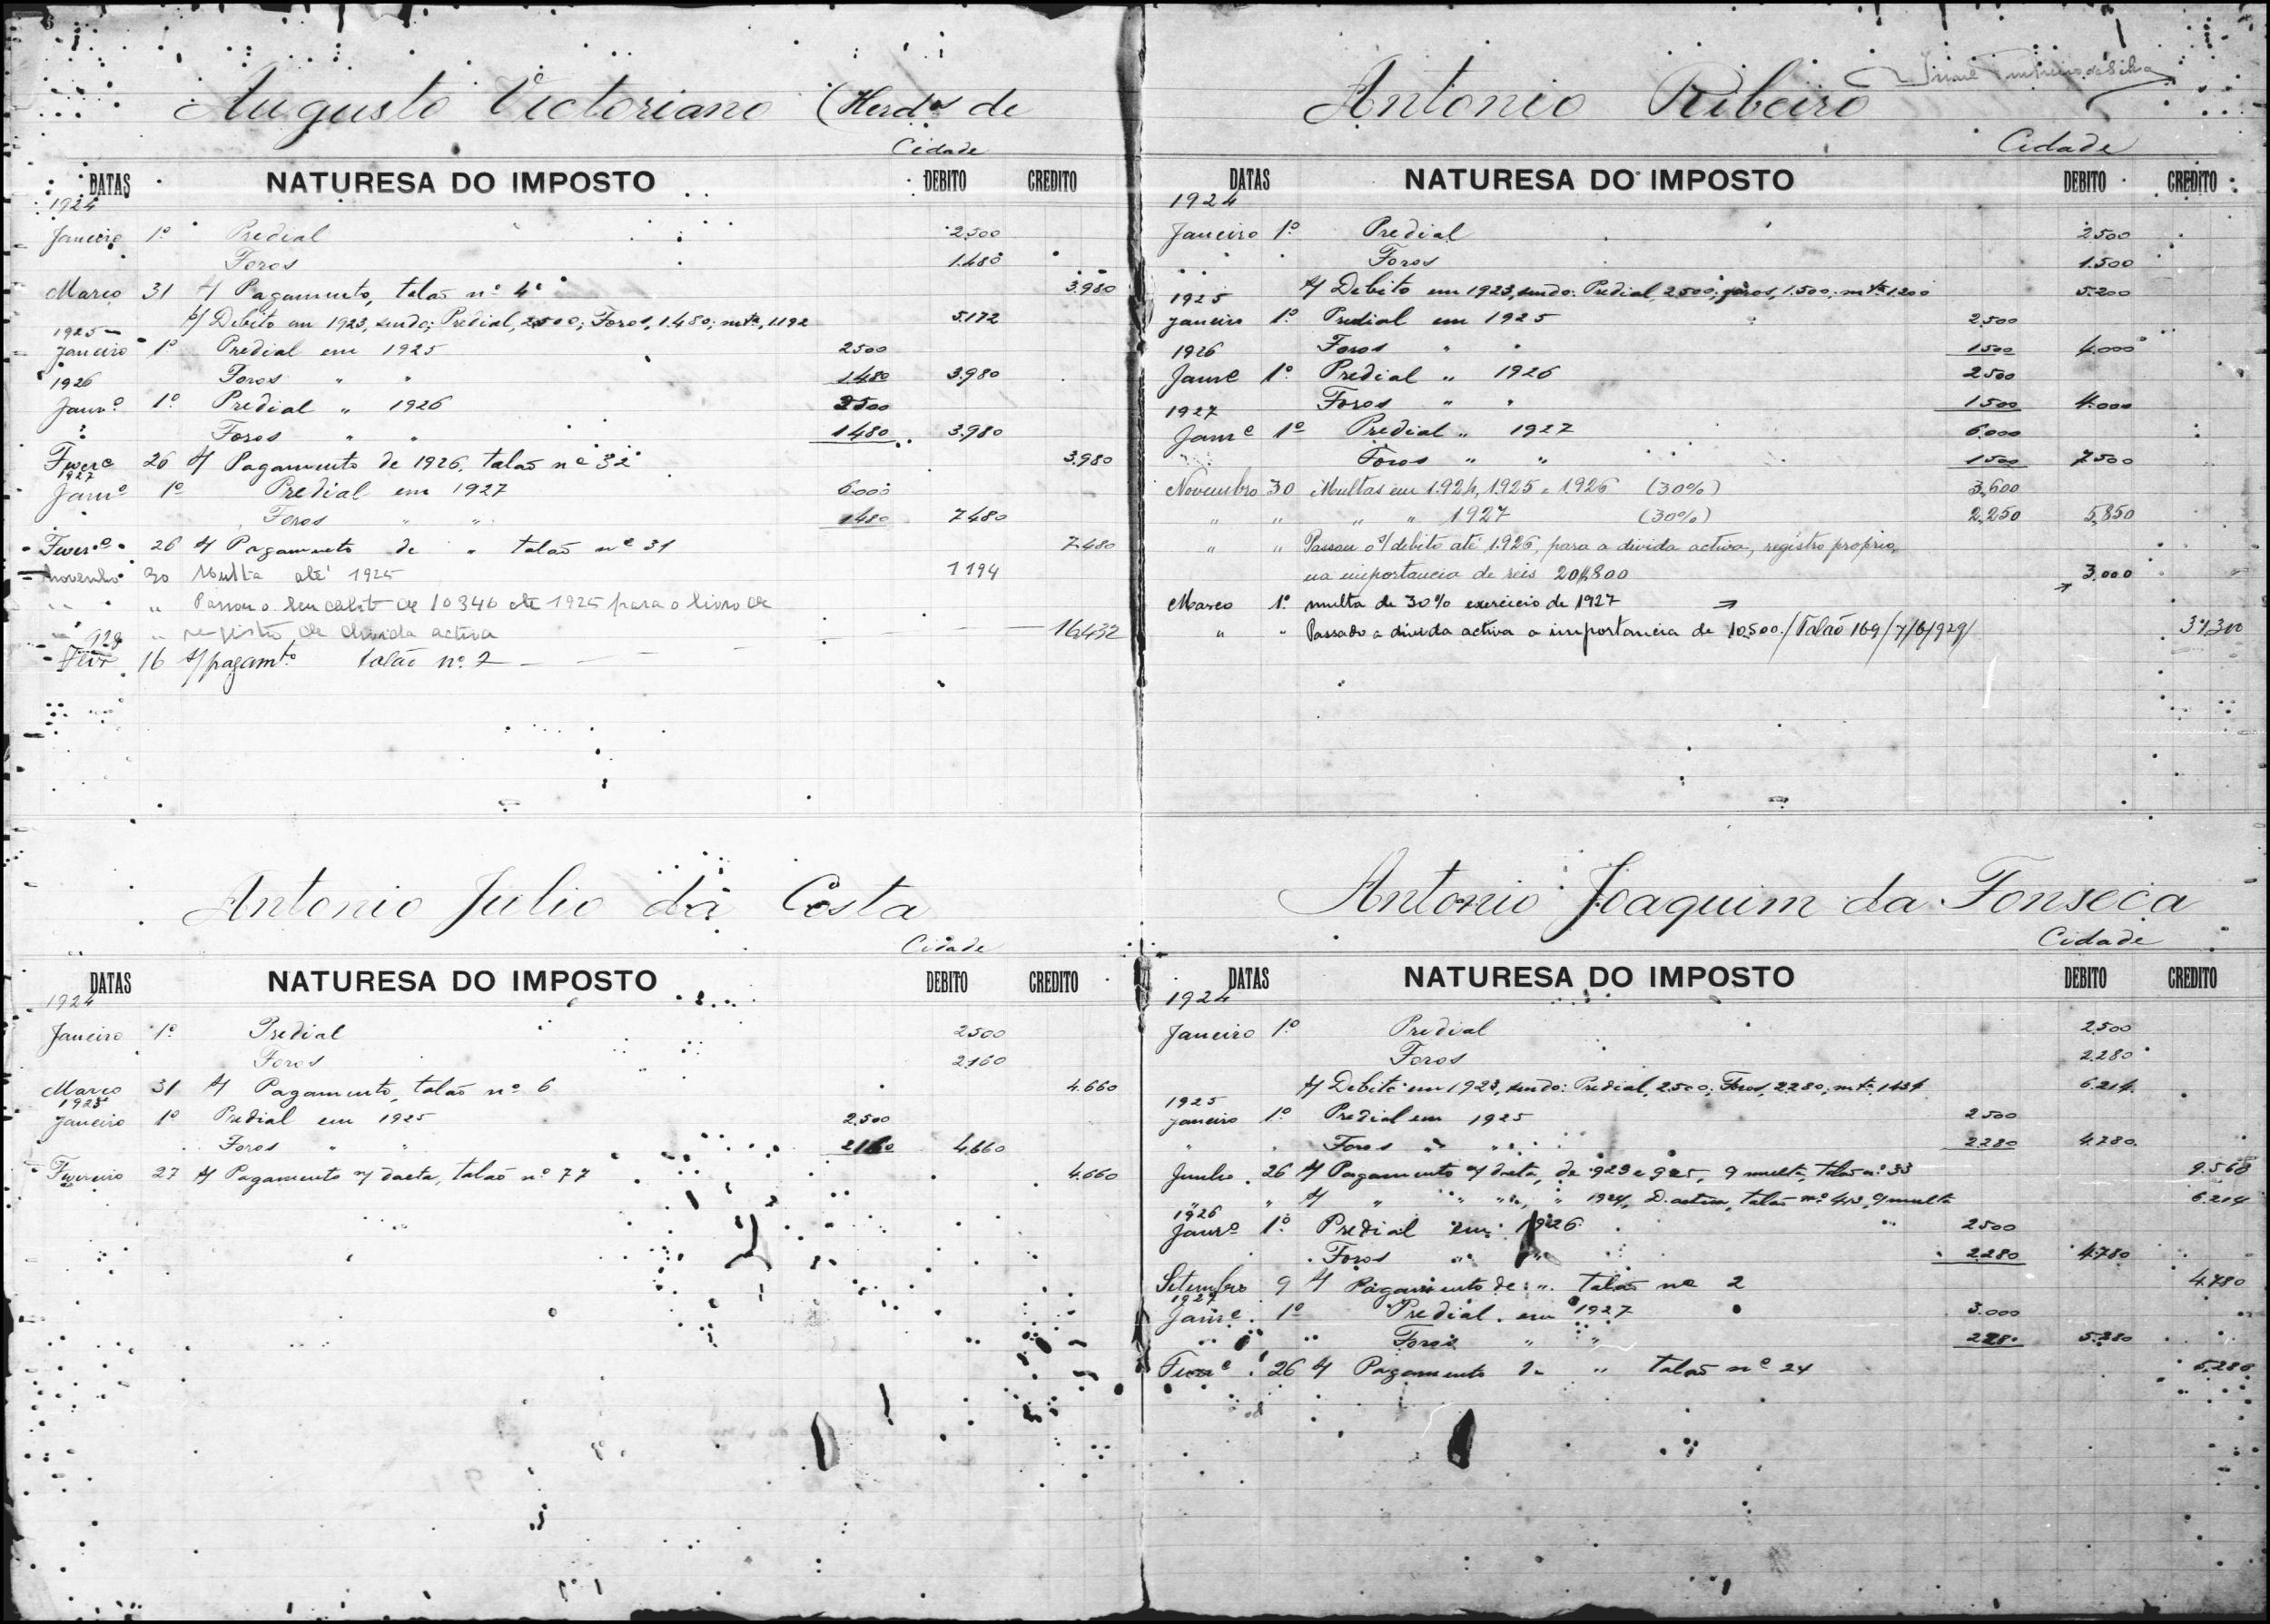 Augusto Victoriano (Herd.os de
Cidade
DATAS NATURESA DO IMPOSTO DEBITO CREDITO
1924
Janeiro 1º Predial 2.500
Foros 1.480
Março 31 s/ Pagamento, talão nº 4 3.980
s/ Debito em 1923, sendo; Predial, 2.500; Foros, 1.480; mta, 1.192 5.172
1925
Janeiro 1º Predial em 1925 2500
1926 Foros " " 1.480 3.980
Janrº 1º Predial " 1926 2500
Foros " " 1480 3.980
Feverº 26 s/ Pagamento de 1926, talão nº 32 3.980
1927
Janrº 1º Predial em 1927 6.000
Foros " " 1480 7.480
Feverº 26 s/ Pagamento de " talão nº 31 7.480
Novembro 30 Multa até 1925 1194
" " Passou o seu debito de 10346 até 1925 para o livro de
" 928 " registro de divida activa 16.432
Fevr 16 s/ pagamto talão nº 2
Antonio Ribeiro
Cidade
DATAS NATURESA DO IMPOSTO DEBITO CREDITO
1924
Janeiro 1º Predial 2.500
Foros 1.500
s/ Debito em 1923, sendo: Predial, 2500; foros, 1.500; mta 1.200 5.200
1925
Janeiro 1º Predial em 1925 2500
1926 Foros " " 1500 4.000
Janrº 1º Predial " 1926 2500
1927 Foros " " 1500 4.000
Janrº 1º Predial " 1927 6.000
Foros " " 1500 7.500
Novembro 30 Multas em 1.924, 1.925 e 1.926 (30%) 3,600
" " " " 1927 (30%) 2,250 5,850
" " Passou o s/ debito até 1.926, para a divida activa, registro proprio,
na importancia de reis 20,800 3.000
Março 1º multa de 30% exercicio de 1927
" " Passado a divida activa a importancia de 10.500./Talão 169/7/6/929/
Antonio Julio da Costa
Cidade
DATAS NATURESA DO IMPOSTO DEBITO CREDITO
1924
Janeiro 1º Predial 2500
Foros 2160
Março 31 s/ Pagamento, talão nº 6 4.660
1925
Janeiro 1º Predial em 1925 2.500
Foros " " 2160 4.660
Fevereiro 27 s/ Pagamento n/ dacta, talão nº 77 4.660
Antonio Joaquim da Fonseca
Cidade
DATAS NATURESA DO IMPOSTO DEBITO CREDITO
1924
Janeiro 1º Predial 2.500
Foros 2.280
s/ Debito em 1923, sendo: Predial, 2.500; Foros, 2.280; mta 1434 6.214
1925
Janeiro 1º Predial em 1925 2500
" Foros " " 2280 4.780
Junho 26 s/ Pagamento n/ dacta, de 923 e 925, multa, talão nº 33 9.560
" " s/ " " " " 1924, D. activa, talão nº 413, multa 6.214
1926
Janrº 1º Predial em 1926 2500
Foros " " 2280 4.780
Setembro 9 s/ Pagamento de " talão nº 2 4.780
1927
Janrº 1º Predial em 1927 3.000
Foros " " 2280 5.280
Feverº 26 s/ Pagamento de " talão nº 24 5.280